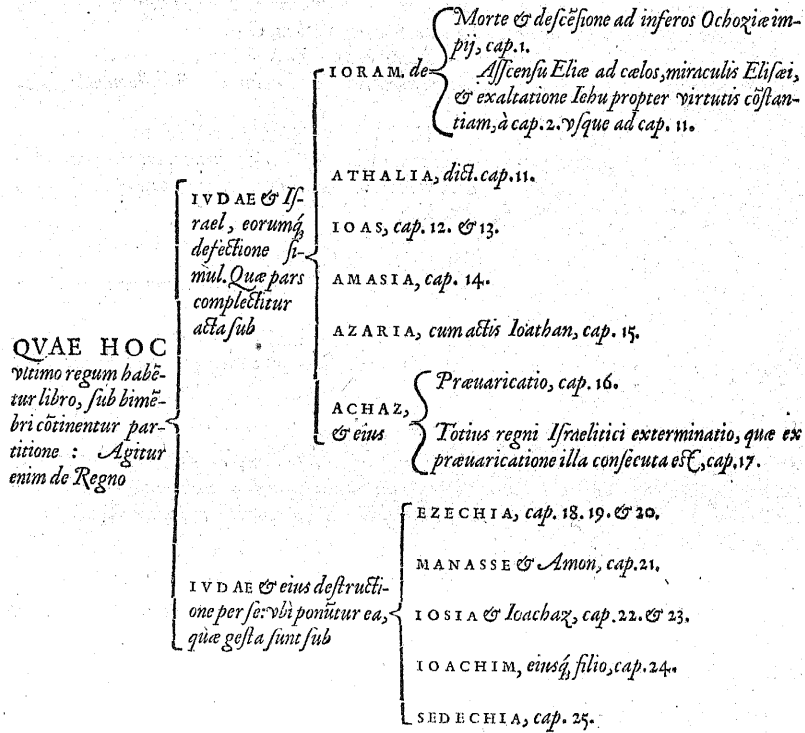 QVAE HOC
vltimo regum habē-
tur libro, sub bimē-
bri cōtinentur par-
titione : Agitur
enim de Regno
IVDAE & Is-
rael, eorumq́;
defectione si-
mul. Quæ pars
complectitur
acta sub
IORAM. de
Morte & descēsione ad inferos Ochoziæ im-
pij, cap. 1.
Asscensu Eliæ ad cælos, miraculis Elisæi,
& exaltatione Iehu propter virtutis cōstan-
tiam, à cap. 2. vsque ad cap. 11.
ATHALIA, dict. cap. 11.
IOAS, cap. 12. & 13.
AMASIA, cap. 14.
AZARIA, cum actis Ioathan, cap. 15.
ACHAZ,
& eius
Præuaricatio, cap. 16.
Totius regni Israelitici exterminatio, quæ ex
præuaricatione illa consecuta est, cap. 17.
IVDAE & eius destructi-
one per se: vbi ponūtur ea,
quæ gesta sunt sub
EZECHIA, cap. 18. 19. & 20.
MANASSE & Amon, cap. 21.
IOSIA & Ioachaz, cap. 22. & 23.
IOACHIM, eiusq́; filio, cap. 24.
SEDECHIA, cap. 25.